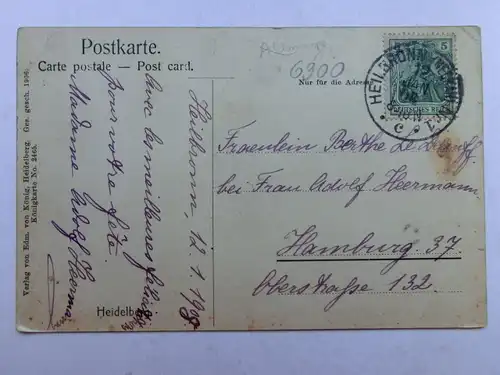 Postkarte.
Carte postale — Post card.
Nur für die Adresse
6300
5
DEUTSCHES REICH
HEILBRONN (NECKAR)
Heilbronn, 12. 1. 1908
Avec les meilleures
pour votre fête.
Madame Adolf Heermann
Fraeulein Berthe
bei Frau Adolf Heermann
Hamburg 37
Oberstraße 132.
Heidelberg
Verlag von Edm. von König, Heidelberg. Ges. gesch. 1906.
Königkarte No. 2465.